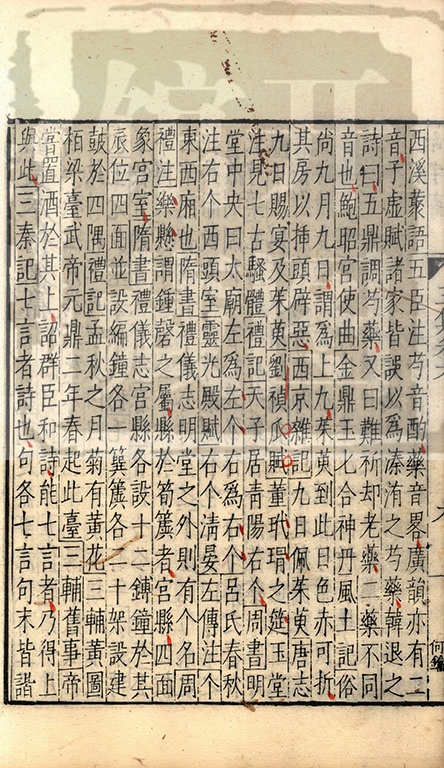 西溪叢語五臣注芍音酌藥音畧廣韻亦有二
音子虛賦諸家皆誤以爲溱洧之芍藥韓退之
詩曰五鼎調芍藥又曰難祈却老藥二藥不同
音也鮑昭宮使曲金鼎玉匕合神丹風土記俗
尚九月九日謂爲上九茱萸到此日色赤可折
其房以揷頭辟惡西京雜記九日佩茱萸唐志
九日賜宴及茱萸劉禎瓜賦薰玳瑁之筵玉堂
注見七古騷體禮記天子居青陽右个周書明
堂中央曰大廟左爲左个右爲右个呂氏春秋
注右个西頭室靈光殿賦右个清晏左傳注个
東西廂也隋書禮儀志明堂之外則有个名周
禮注樂懸謂鍾磬之屬縣於筍簴者宮縣四面
象宮室隋書禮儀志宮縣各設十二鎛鍾於其
辰位四面並設編鍾各一簨簴各一十架設建
鼓於四隅禮記孟秋之月菊有黃花三輔黃圖
栢梁臺武帝元鼎二年春起此臺三輔舊事帝
嘗置酒於其上詔群臣和詩能七言者乃得上
與此三秦記七言者詩也句各七言句末皆諧